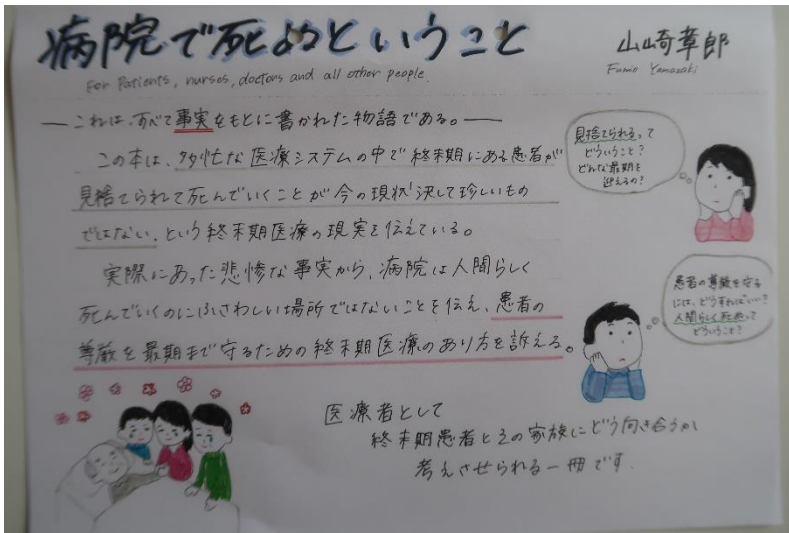 病院で死ぬということ
山崎章郎
For Patients, nurses, doctors and all other people.
Fumio Yamazaki
―これは、すべて事実をもとに書かれた物語である。―
この本は、多忙な医療システムの中で終末期にある患者が
見捨てられて死んでいくことが今の現状決して珍しいもの
ではない、という終末期医療の現実を伝えている。
実際にあった悲惨な事実から、病院は人間らしく
死んでいくのにふさわしい場所ではないことを伝え、患者の
尊厳を最期まで守るための終末期医療のあり方を訴える。
見捨てられるって
どういうこと?
どんな最期を
迎えるの?
患者の尊厳を守る
には、どうすればいい?
人間らしく死ぬって
どういうこと?
医療者として
終末期患者とその家族にどう向き合うか
考えさせられる一冊です.